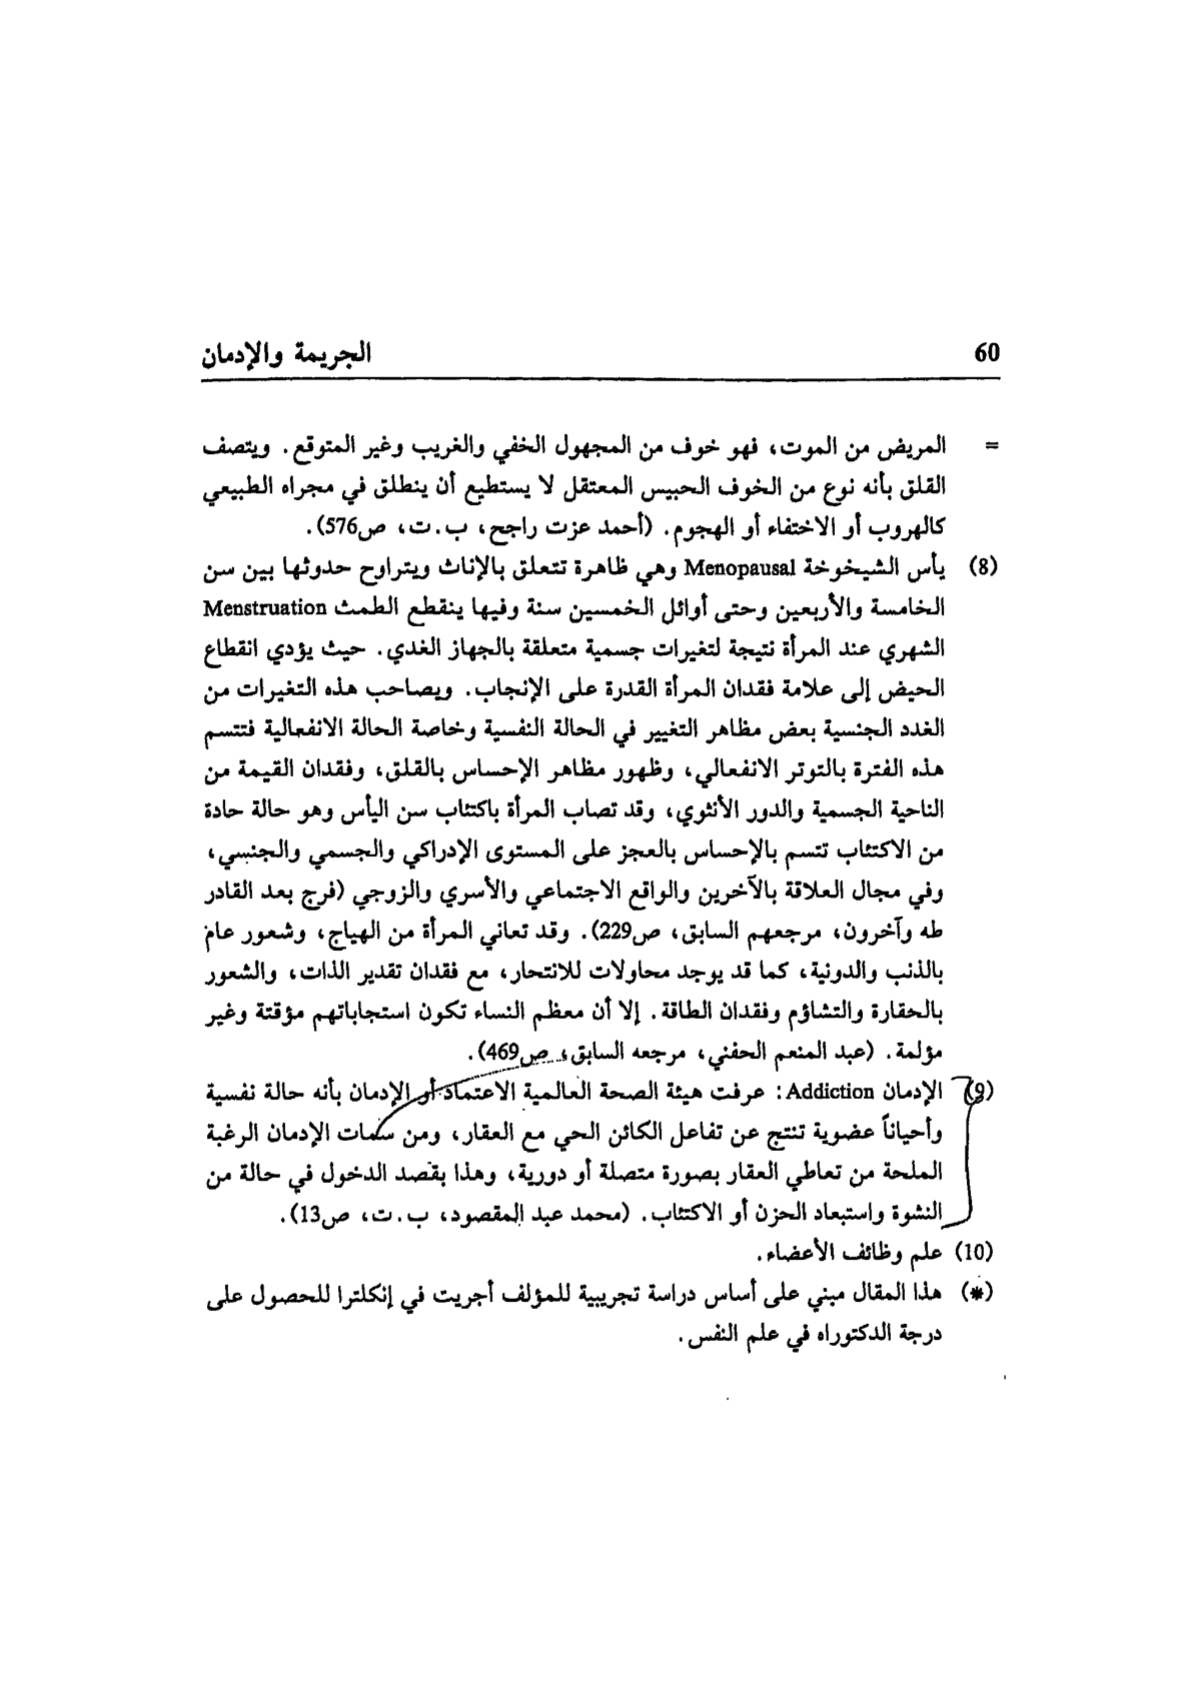 60
الجريمة والإدمان
= المريض من الموت، فهو خوف من المجهول الخفي والغريب وغير المتوقع. ويتصف
القلق بأنه نوع من الخوف الحبيس المعتقل لا يستطيع أن ينطلق في مجراه الطبيعي
كالهروب أو الاختفاء أو الهجوم. (أحمد عزت راجح، ب.ت، ص576).
(8) يأس الشيخوخة Menopausal وهي ظاهرة تتعلق بالإناث ويتراوح حدوثها بين سن
الخامسة والأربعين وحتى أوائل الخمسين سنة وفيها ينقطع الطمث Menstruation
الشهري عند المرأة نتيجة لتغيرات جسمية متعلقة بالجهاز الغدي. حيث يؤدي انقطاع
الحيض إلى علامة فقدان المرأة القدرة على الإنجاب. ويصاحب هذه التغيرات من
الغدد الجنسية بعض مظاهر التغيير في الحالة النفسية وخاصة الحالة الانفعالية فتتسم
هذه الفترة بالتوتر الانفعالي، وظهور مظاهر الإحساس بالقلق، وفقدان القيمة من
الناحية الجسمية والدور الأنثوي، وقد تصاب المرأة باكتئاب سن اليأس وهو حالة حادة
من الاكتئاب تتسم بالإحساس بالعجز على المستوى الإدراكي والجسمي والجنسي،
وفي مجال العلاقة بالآخرين والواقع الاجتماعي والأسري والزوجي (فرج بعد القادر
طه وآخرون، مرجعهم السابق، ص229). وقد تعاني المرأة من الهياج، وشعور عام
بالذنب والدونية، كما قد يوجد محاولات للانتحار، مع فقدان تقدير الذات، والشعور
بالحقارة والتشاؤم وفقدان الطاقة. إلا أن معظم النساء تكون استجاباتهم مؤقتة وغير
مؤلمة. (عبد المنعم الحفني، مرجعه السابق، ص469).
(9) الإدمان Addiction: عرفت هيئة الصحة العالمية الاعتماد أو الإدمان بأنه حالة نفسية
وأحياناً عضوية تنتج عن تفاعل الكائن الحي مع العقار، ومن سمات الإدمان الرغبة
الملحة من تعاطي العقار بصورة متصلة أو دورية، وهذا بقصد الدخول في حالة من
النشوة واستبعاد الحزن أو الاكتئاب. (محمد عبد المقصود، ب.ت، ص13).
(10) علم وظائف الأعضاء.
(*) هذا المقال مبني على أساس دراسة تجريبية للمؤلف أجريت في إنكلترا للحصول على
درجة الدكتوراه في علم النفس.